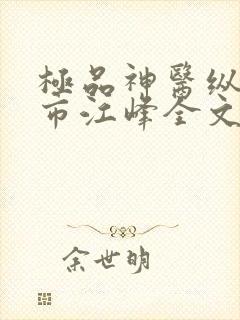 極品神醫纵
市江峰全文
余世明